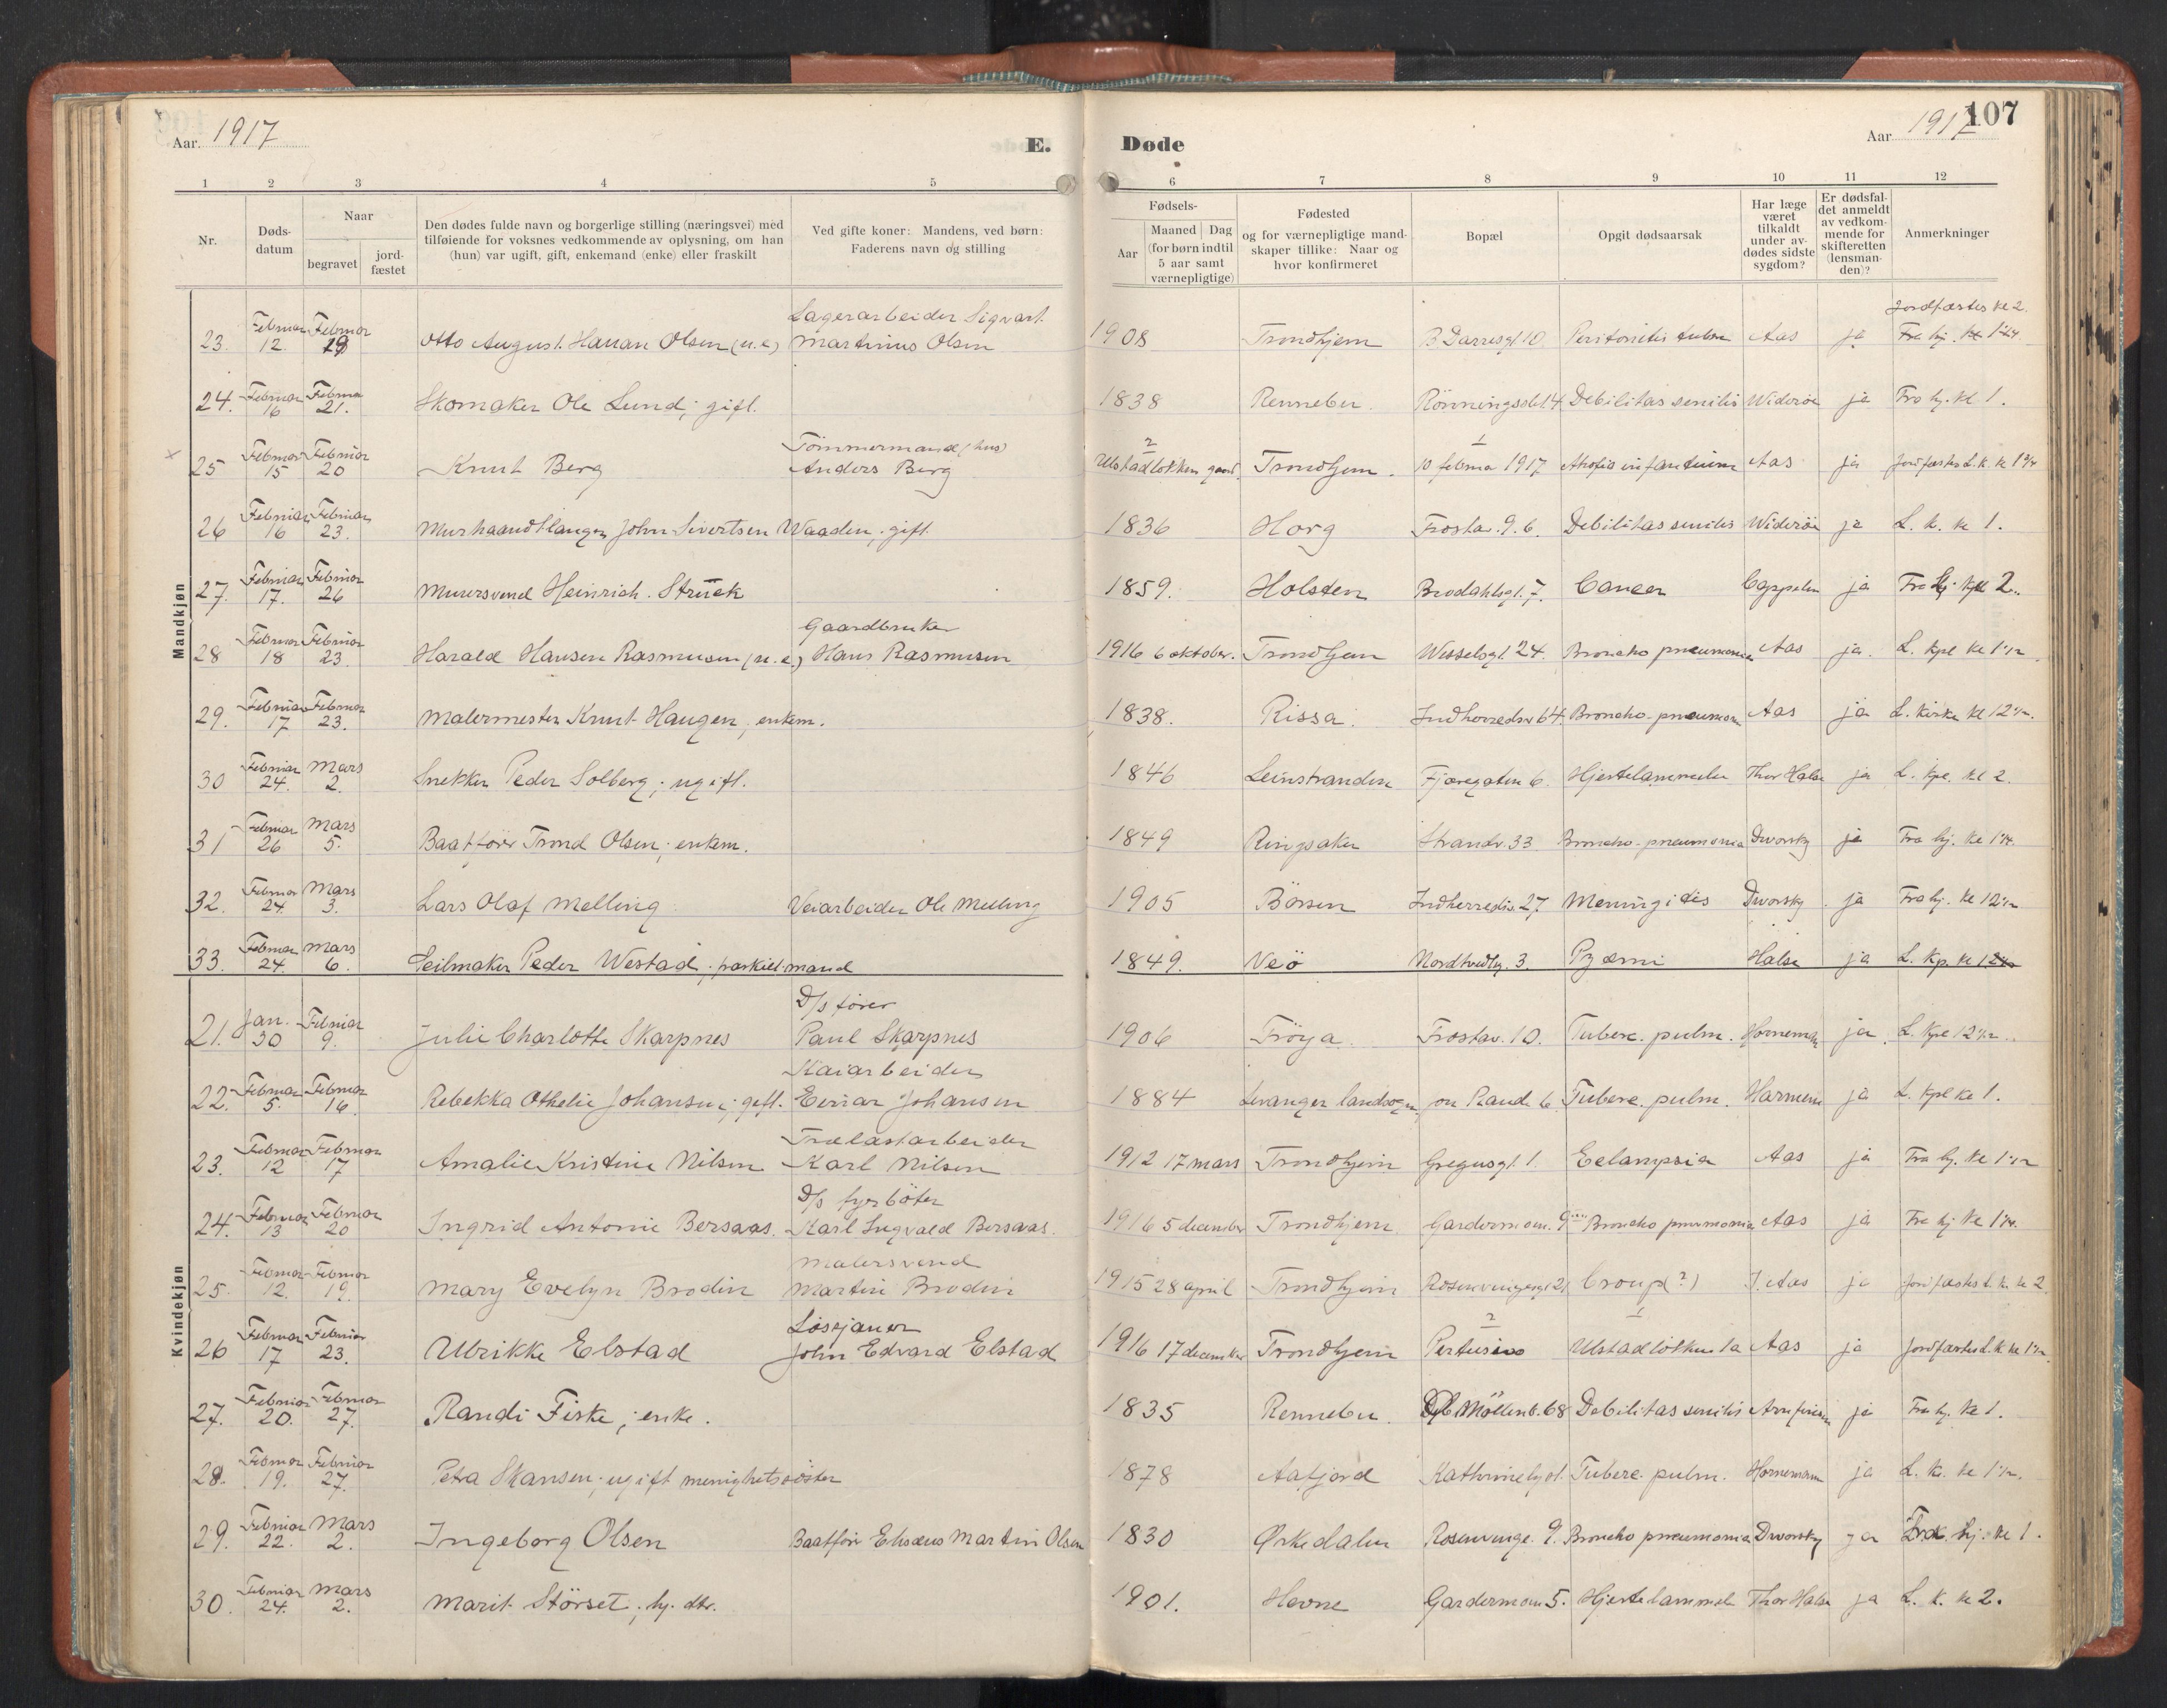 Aar. 1917
E.
1 2 3 4 5
Nr.
Døds-
datum
Naar
begravet
jord-
fæstet
Den dødes fulde navn og borgerlige stilling (næringsvei) med
tilføiende for voksnes vedkommende av oplysning, om han
(hun) var ugift, gift, enkemand (enke) eller fraskilt
Ved gifte koner: Mandens, ved børn:
Faderens navn og stilling
Mandkjøn
Februar Februar Lagerarbeider Sigvart
23. 12. 19 Otto August Hanan Olsen (u.e) Martinius Olsen
Februar Februar
24. 16 21. Skomaker Ole Lund; gift.
Februar Februar Tömmermand (hus)
25 15 20 Knut Berg Anders Berg
Februar Februar
26 16 23. Murhaandlanger John Sivertsen Waaden; gift.
Februar Februar
27. 17. 26 Murersvend Heinrich Struck
Februar Februar Gaardbruker
28 18 23. Harald Hansen Rasmusen (u.e.) Hans Rasmusen
Februar Februar
29. 17 23. Malermester Knut Haugen; enkem.
Februar Mars
30 24. 2. Snekker Peder Solberg; ugift.
Februar Mars
31 26 5. Baatfører Trond Olsen; enkem.
Februar Mars
32. 24. 3. Lars Olaf Melling Veiarbeider Ole Melling
Februar Mars
33. 24. 6. Seilmaker Peder Westad; fraskilt mand
Kvindekjøn
Jan. Februar D/s fører
21. 30 9. Julie Charlotte Skarpnes Paul Skarpnes
Februar Februar Kaiarbeider
22. 5. 16. Rebekka Othelie Johansen; gift. Einar Johansen
Februar Februar Trælastarbeider
23. 12 17 Amalie Kristine Nilsen Karl Nilsen
Februar Februar D/s fyrböter
24. 13 20 Ingrid Antonie Bersaas. Karl Ingvald Bersaas.
Februar Februar Malersvend
25. 12. 19. Mary Evelyn Brodin Martin Brodin
Februar Februar
26 17 23. Ulrikke Elstad John Edvard Elstad
Februar Februar
27. 20. 27. Randi Fiske; enke.
Februar Februar
28. 19. 27. Petra Skansen; ugift menighetssöster
Februar Mars
29. 22. 2. Ingeborg Olsen Baatfører Elisæus Martin Olsen
Februar Mars
30. 24. 2. Marit Störset; hj. dtr.
Døde
Aar 1917
107
6 7 8 9 10 11 12
Fødsels-
Aar
Maaned Dag
(for børn indtil
5 aar samt
værnepligtige)
Fødested
og for værnepligtige mand-
skaper tillike: Naar og
hvor konfirmeret
Bopæl
Opgit dødsaarsak
Har læge
været
tilkaldt
under av-
dødes sidste
sygdom?
Er dødsfal-
det anmeldt
av vedkom-
mende for
skifteretten
(lensman-
den)?
Anmerkninger
Jordfæstes kl 2
1908 Trondhjem B Darresgt 10 Peritonitis tuberc Aas ja Fra hj.
1838 Rennebu. Rönningsslet 4 Debilitas senilis Wideröe ja Fra hj. kl 1.
2 1
Ulstadlökken Trondhjem. 10 februar 1917 Atrofis infantium Aas ja Jordfæstes L. k. kl
1836 Horg Frostav. 9. 6. Debilitas senilis Wideröe ja L. k. kl 1.
1859. Holsten Brodahlsgt. 7. Cancer Cappelen ja Fra hj. kl 2.
1916 6 oktober. Trondhjem Wesselsgt. 24. Broncho pneumonia Aas ja. L. kpl kl 1 1/2
1838. Rissa. Indherredsv 64. Broncho-pneumoni Aas ja L. kirke kl 12 1/2.
1846 Leinstranden Fjæregaten 6. Hjertelammelse Thor Halse ja L. kpl. kl 2.
1849 Ringsaker Strandv. 33 Broncho-pneumonia Dworsky ja Fra hj. kl
1905 Börsen Indherredsv. 27 Meningitis Dworsky ja Fra hj. kl 12 1/2
1849. Veö 3. Pyæmi Halse ja L. kp. kl
1906 Fröya. Frostav. 10. Tuberc. pulm. Hornemann ja L. kpl 12 1/2.
1884 Levanger landsogn 6 Tuberc. pulm. ja L. kpl kl 1.
1912 17 mars Trondhjem Gregusgt. 1. Eclampsia Aas ja Fra hj. kl 1 1/2
1916 5 december Trondhjem Gardermoen. 9 Broncho pneumonia Aas ja Fra hj kl
1915 28 april Trondhjem Rosenvingesgt 21 Croup (?) J. Aas ja Jordfæstes L. k. kl 2.
2 1
1916 17 december Trondhjem Pertusis Ulstadlökken 1a Aas ja Jordfæstes L. k kl 1 1/2.
1835 Rennebu. Möllenb. 68 Debilitas senilis ja Fra hj. kl 1.
1878 Aafjord Tuberc. pulm. Hornemann ja L. k. kl 1 1/2.
1830 Ørkedalen Rosenvinge. 9. Broncho pneumonia Dworsky ja Fra hj. kl 1.
1901. Hevne Gardermoen 5. Hjertelammelse Thor Halse ja L. k. kl 2.